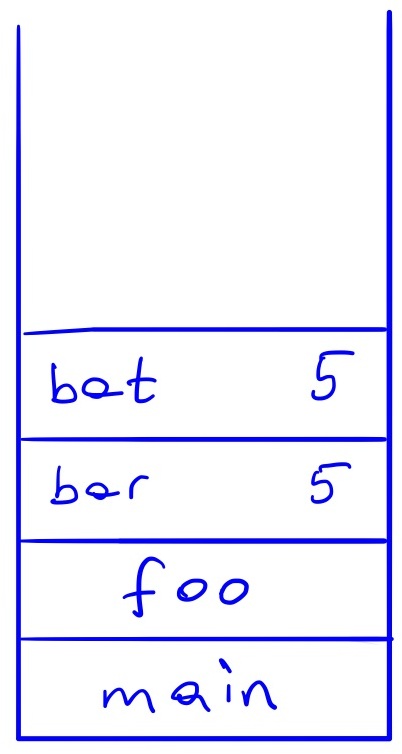 bat 5
bar 5
foo
main